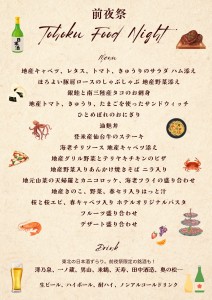 前夜祭
Tohoku Food Night
Menu
地産キャベツ、レタス、トマト、きゅうりのサラダ ハム添え
ほろよい豚ロースのしゃぶしゃぶ 地産野菜添え
銀鮭と南三陸産タコのお刺身
地産トマト、きゅうり、たまごを使ったサンドウィッチ
ひとめぼれのおにぎり
油麩丼
登米産仙台牛のステーキ
海老チリソース 地産キャベツ添え
地産グリル野菜とテリヤキチキンのピザ
地産野菜入りあんかけ焼きそば ニラ入り
地元山菜の天婦羅とカニコロッケ、海老フライの盛り合わせ
地産きのこ、野菜、春セリ入りはっと汁
桜と桜エビ、春キャベツ入り ホテルオリジナルパスタ
フルーツ盛り合わせ
デザート盛り合わせ
Drink
東北の日本酒ずらり。前夜祭限定の銘酒も!
澤乃泉、一ノ蔵、黒山、米鶴、天寿、田中酒造、奥の松…
生ビール、ハイボール、酎ハイ、ノンアルコールドリンク